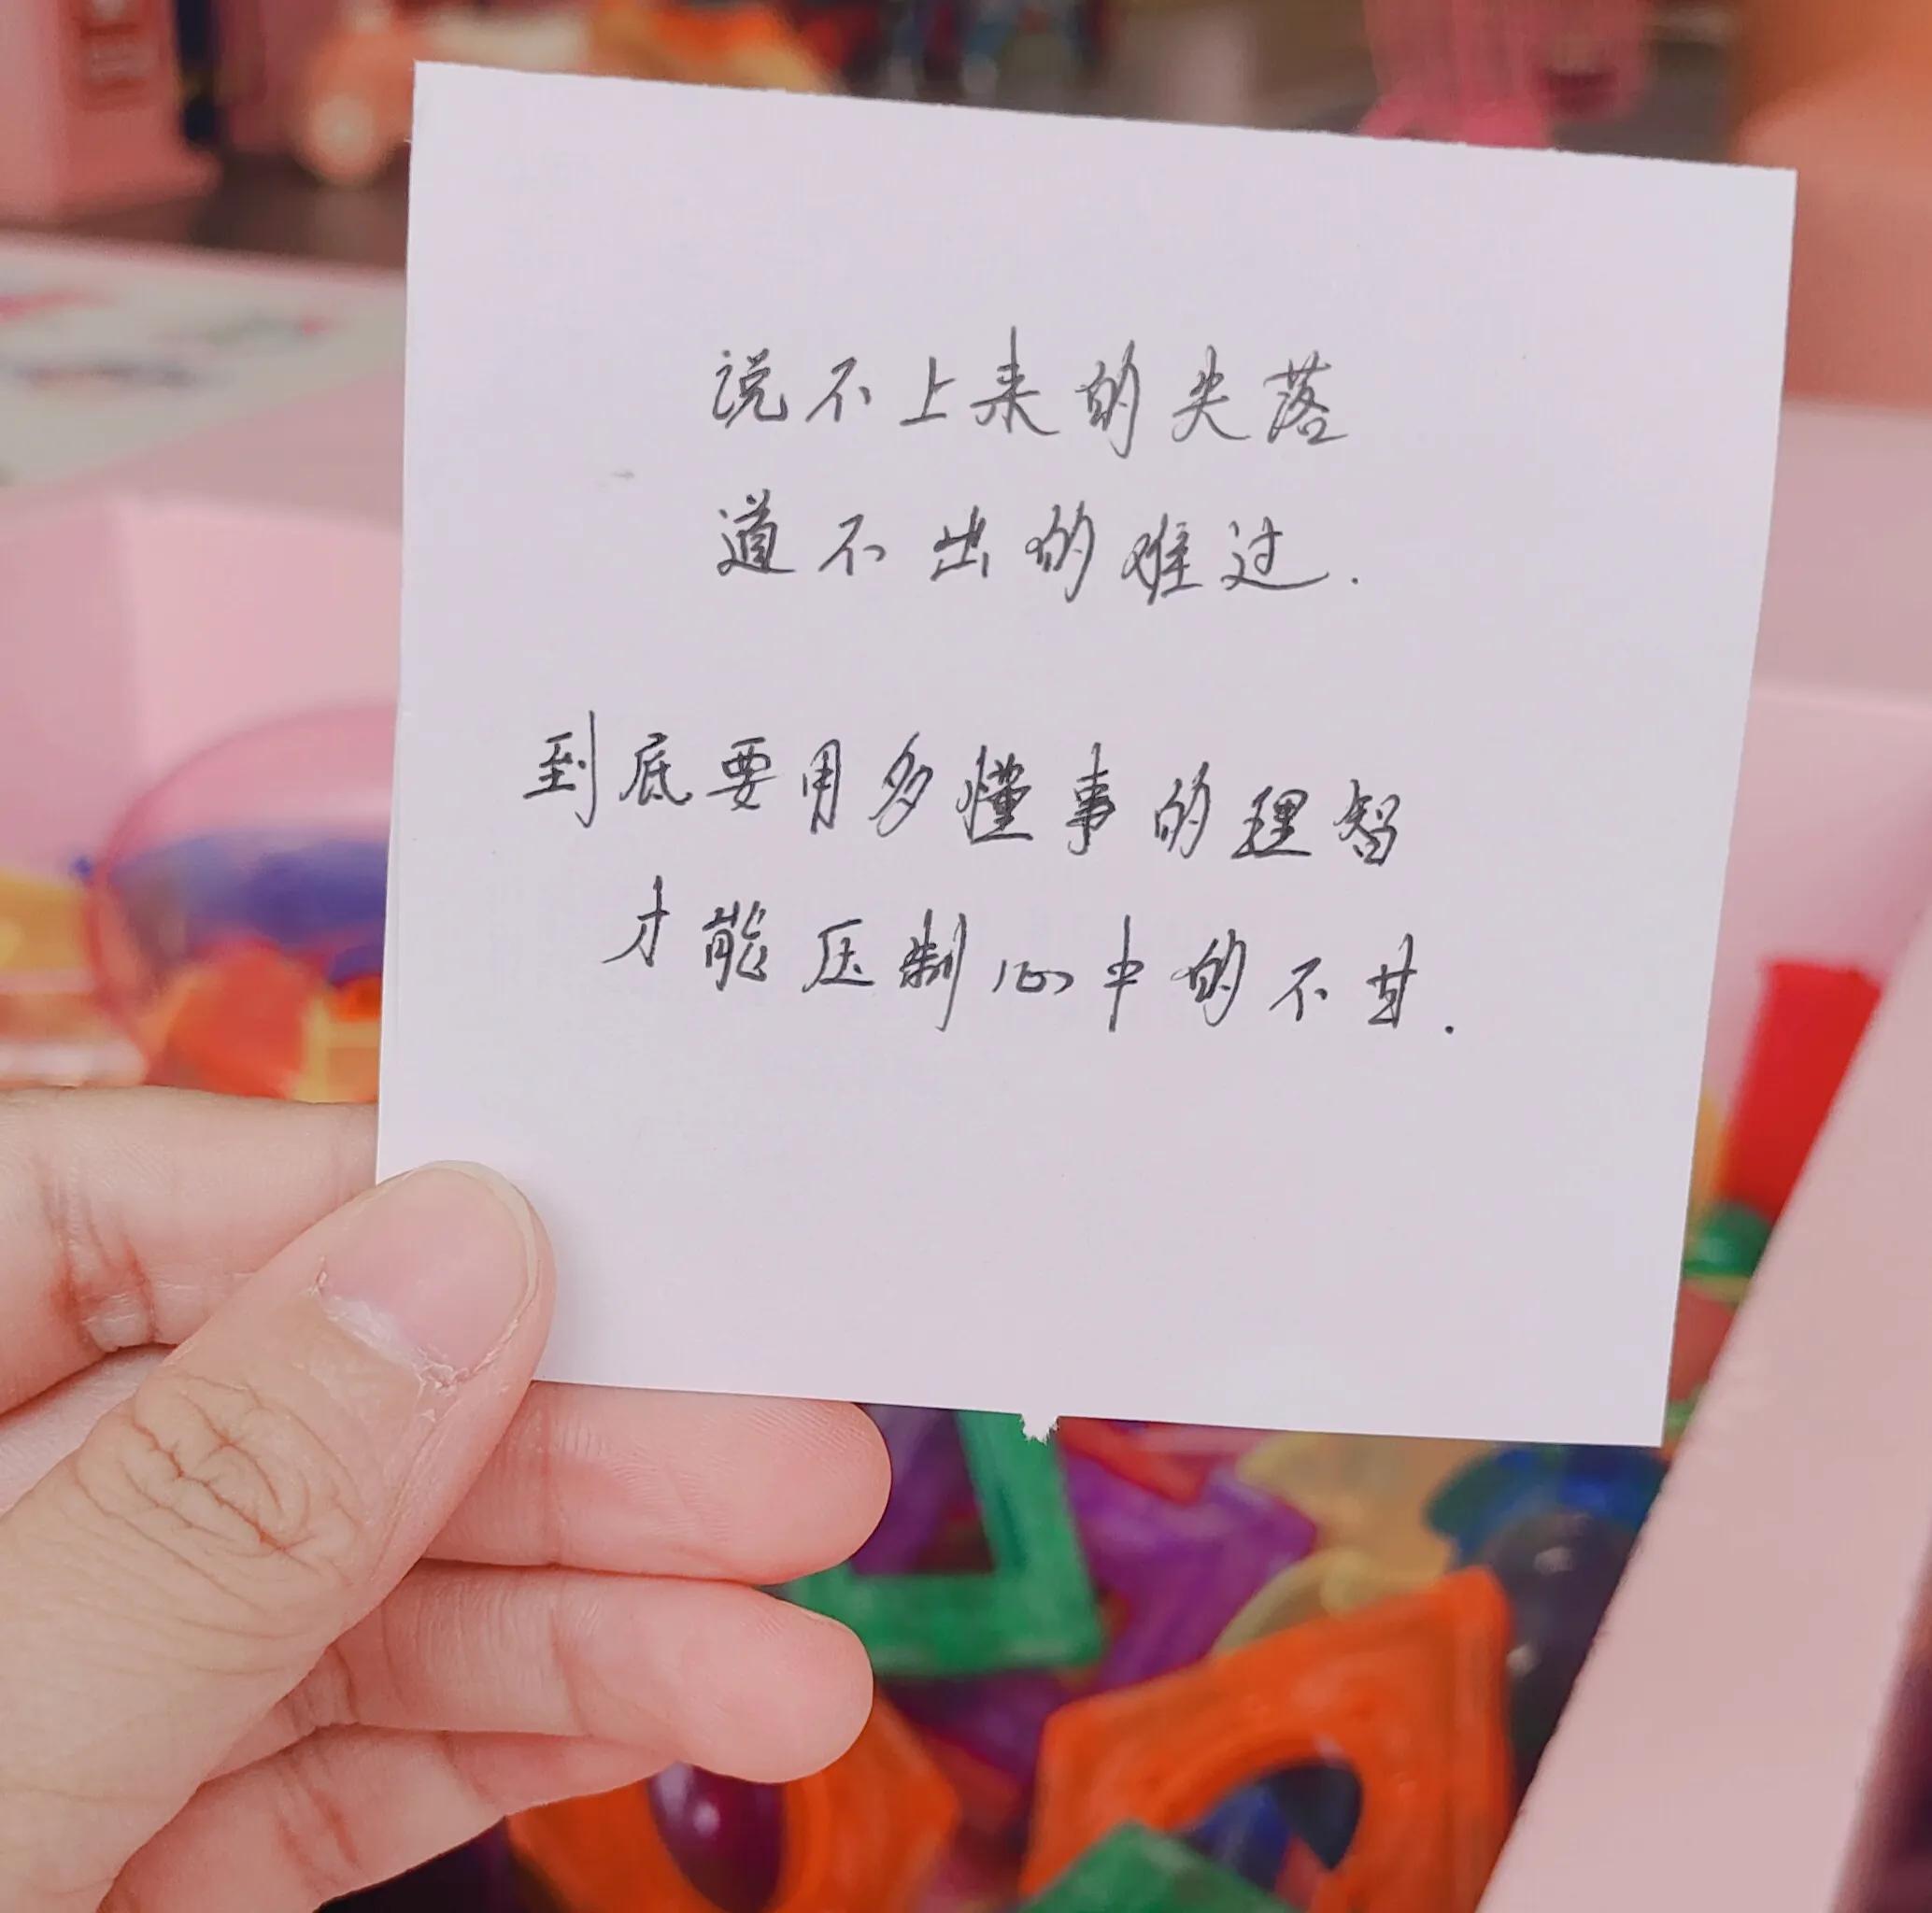 说不上来的失落
道不出的难过.
到底要用多懂事的理智
才能压制心中的不甘.